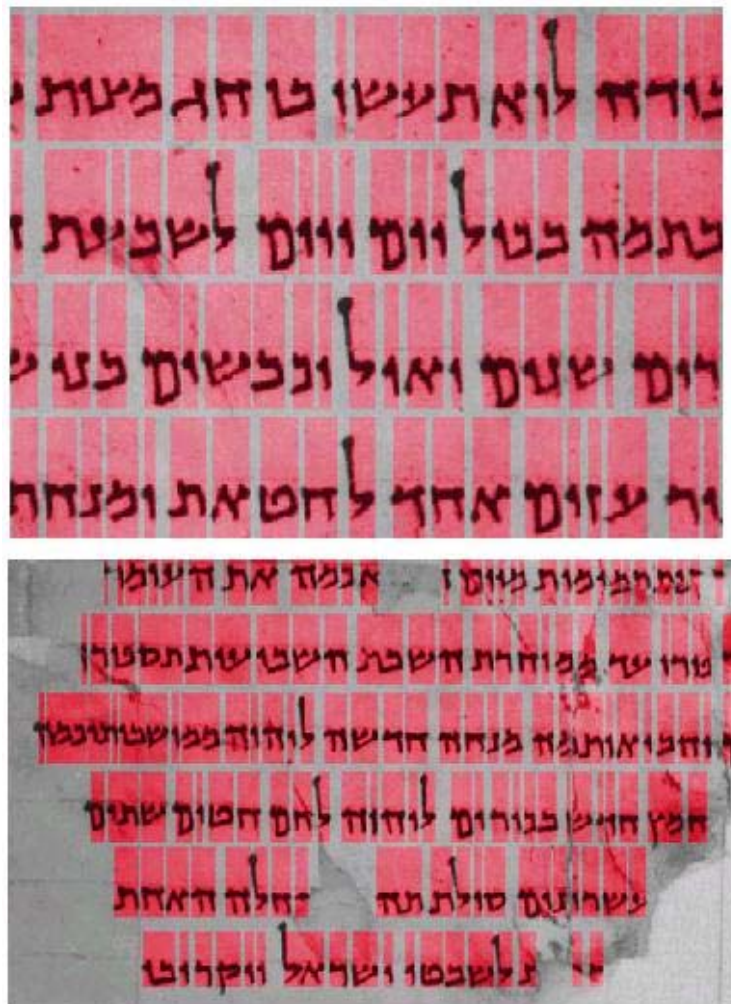 בודה לוא תעשו בו חג מצות
כתמה בכול יום ויום לשבעת
רים שנים ואיל וכבשים בני ש
יר עזים אחד לחטאת ומנחת
תמימות מיום אכמה את העומר
פורו עד ממוחרת השבת השביעית תספורו
והביאותמה מנחה חדשה ליהוה ממושבותיכמה
חמץ חדש בכורים ליהוה לחם חטים שתים
עשרונים סולת תה חלה האחת
לשבטי ישראל ויקריבו